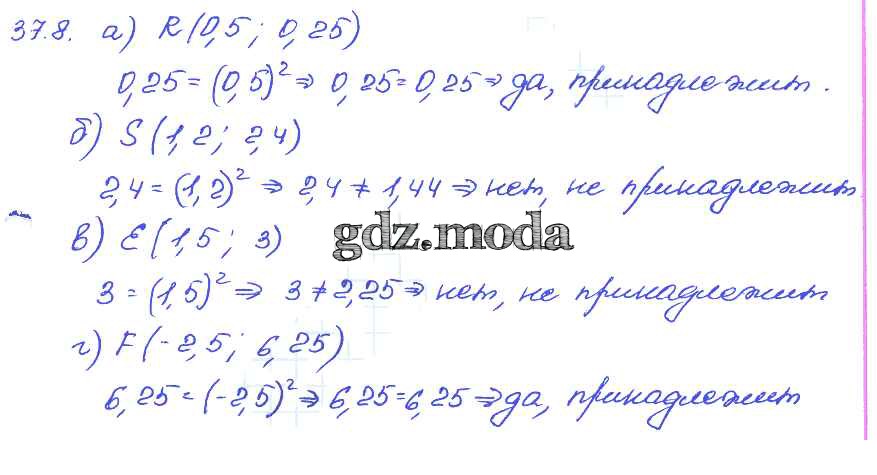 37.8. а) R(0,5; 0,25)
0,25 = (0,5)² ⇒ 0,25 = 0,25 ⇒ да, принадлежит.
б) S(1,2; 2,4)
2,4 = (1,2)² ⇒ 2,4 ≠ 1,44 ⇒ нет, не принадлежит
в) E(1,5; 3)
gdz.moda
3 = (1,5)² ⇒ 3 ≠ 2,25 ⇒ нет, не принадлежит
г) F(-2,5; 6,25)
6,25 = (-2,5)² ⇒ 6,25 = 6,25 ⇒ да, принадлежит